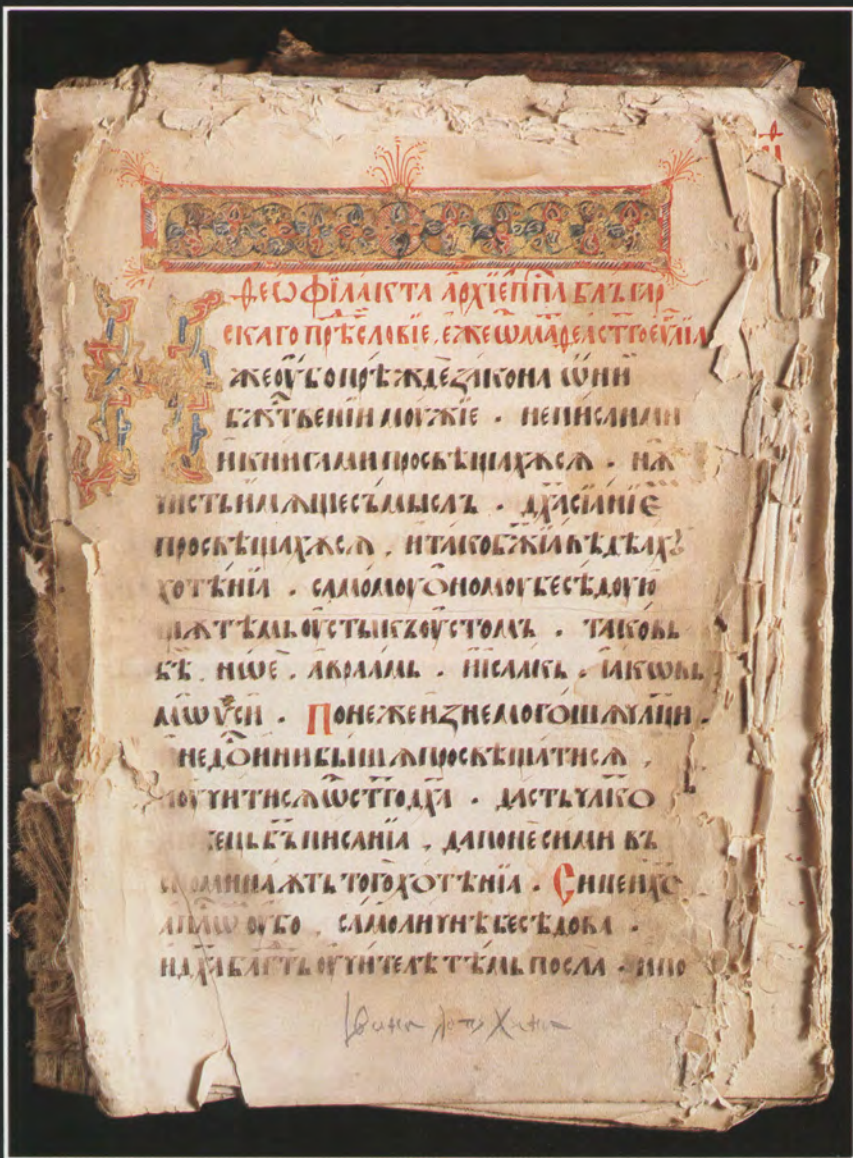 Ѳеѡфіла́кта а҆рхїепⷭ҇па бл҃ъгар
скаго прѣⷣсловїе, е́же ѿ маⷴѳеа ст҃го еѵⷢ҇лїа
И҆же оу҆бо прѣжде закона ѡ҆ни
бжⷭ҇твенїи моужїе · не писаними
и҆ книгами просвѣщахѫсѧ · нѫ
чистъ и҆мѫще съмыслъ · дх҃а сїанїе
просвѣщахѫсѧ , и҆ тако бж҃їа вѣдѣахꙋ
хотѣнїа · самомоу ѻ҆номоу бесѣдоую
щѫ тѣмь оу҆сты къ оу҆стомъ · таковь
бѣ нѡе · авраамь · и҆саакь · і҆акѡвь
мѡѵси · Понеже
недѻ҆ини бышѧ просвѣщатисѧ ,
оучитисѧ ѿ ст҃го дх҃а · дасть чл҃ко
бъ писанїа , да поне сими въ
споминаѫть того хотѣнїа · Сице и҆ хс҃
апⷭ҇лѡ оу҆бо самолично бесѣдова ·
и҆ дх҃а блгⷣть оу҆чителѣ тѣмь посла ·